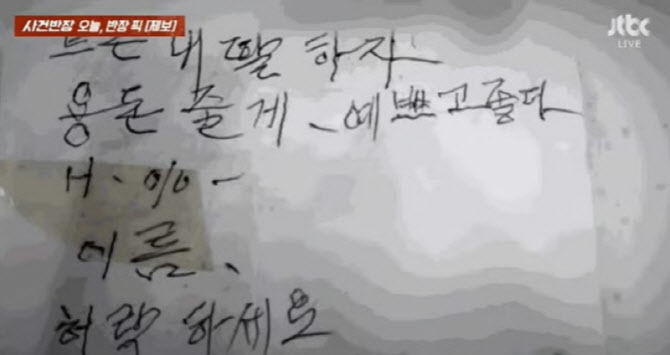 사건반장 오늘, 반장 픽 [제보]
jtbc
LIVE
내 딸 하자
용돈 줄게、예쁘고좋다
H. 010-
이름、
허락 하세요